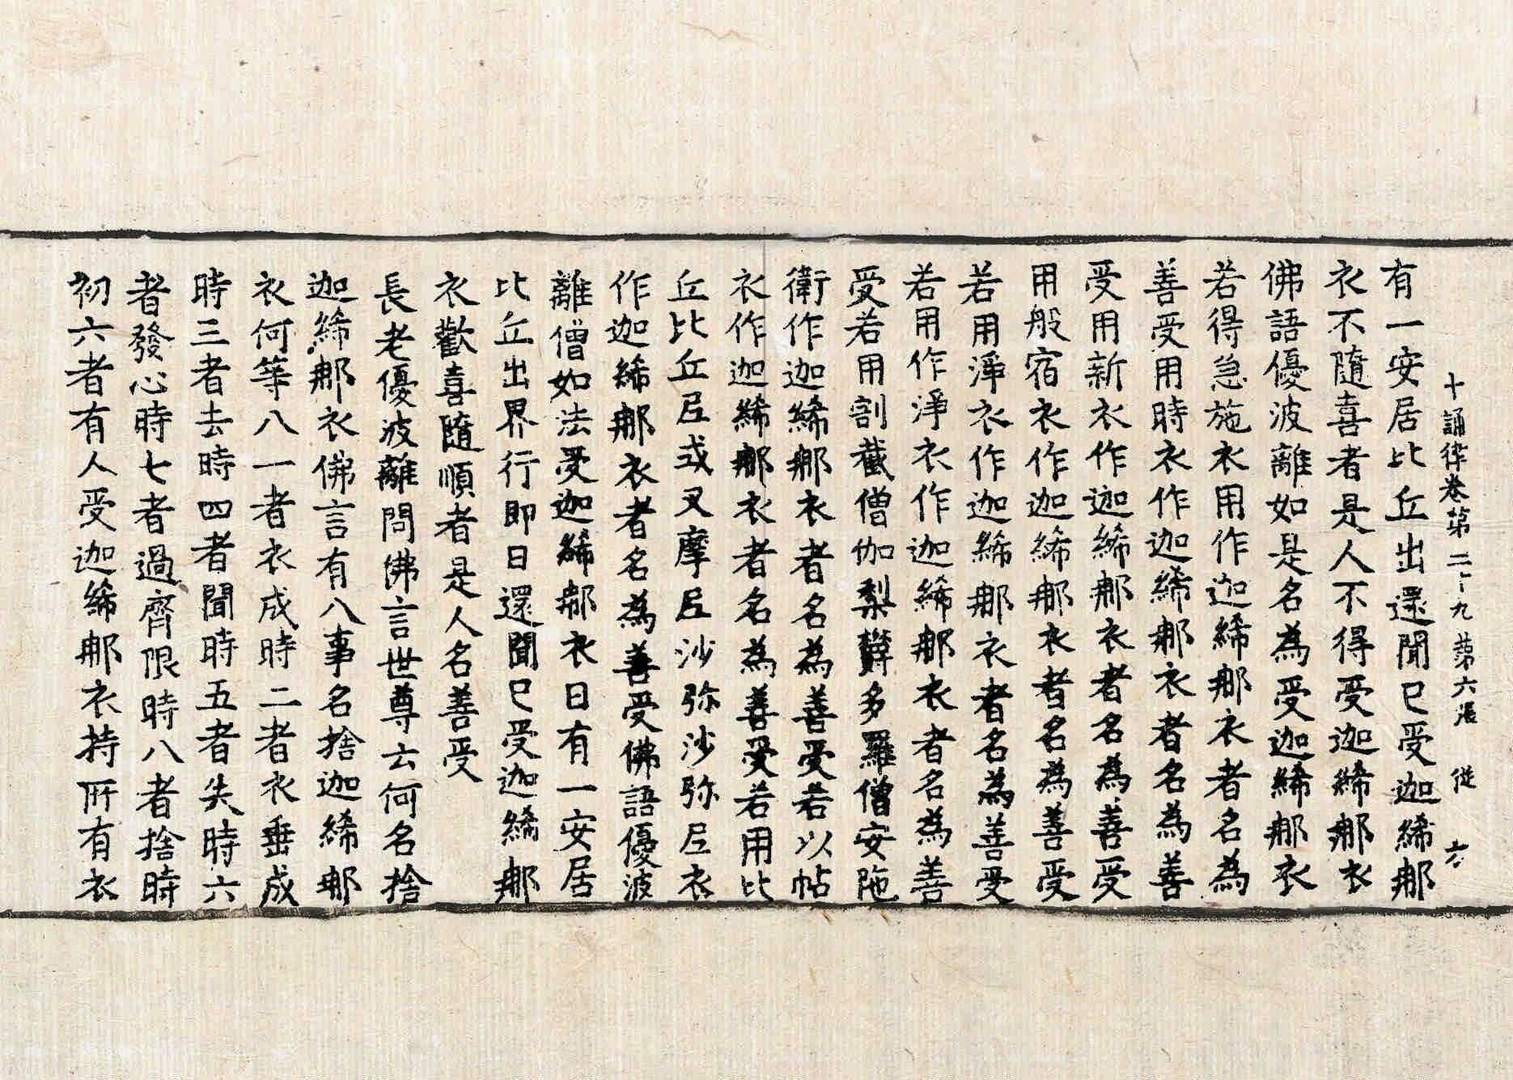 十誦律卷第二十九 第六張 從 六
有一安居比丘出還聞已受迦絺那
衣不隨喜者是人不得受迦絺那衣
佛語優波離如是名為受迦絺那衣
若得急施衣用作迦絺那衣者名為
善受用時衣作迦絺那衣者名為善
受用新衣作迦絺那衣者名為善受
用般宿衣作迦絺那衣者名為善受
若用淨衣作迦絺那衣者名為善受
若用作淨衣作迦絺那衣者名為善
受若用割截僧伽梨欝多羅僧安陁
衛作迦絺那衣者名為善受若以帖
衣作迦絺那衣者名為善受若用比
丘比丘尼或叉摩尼沙弥沙弥尼衣
作迦絺那衣者名為善受佛語優波
離僧如法受迦絺那衣日有一安居
比丘出界行即日還聞已受迦絺那
衣歡喜隨順者是人名善受
長老優波離問佛言世尊云何名捨
迦絺那衣佛言有八事名捨迦絺那
衣何等八一者衣成時二者衣垂成
時三者去時四者聞時五者失時六
者發心時七者過齊限時八者捨時
初六者有人受迦絺那衣持所有衣